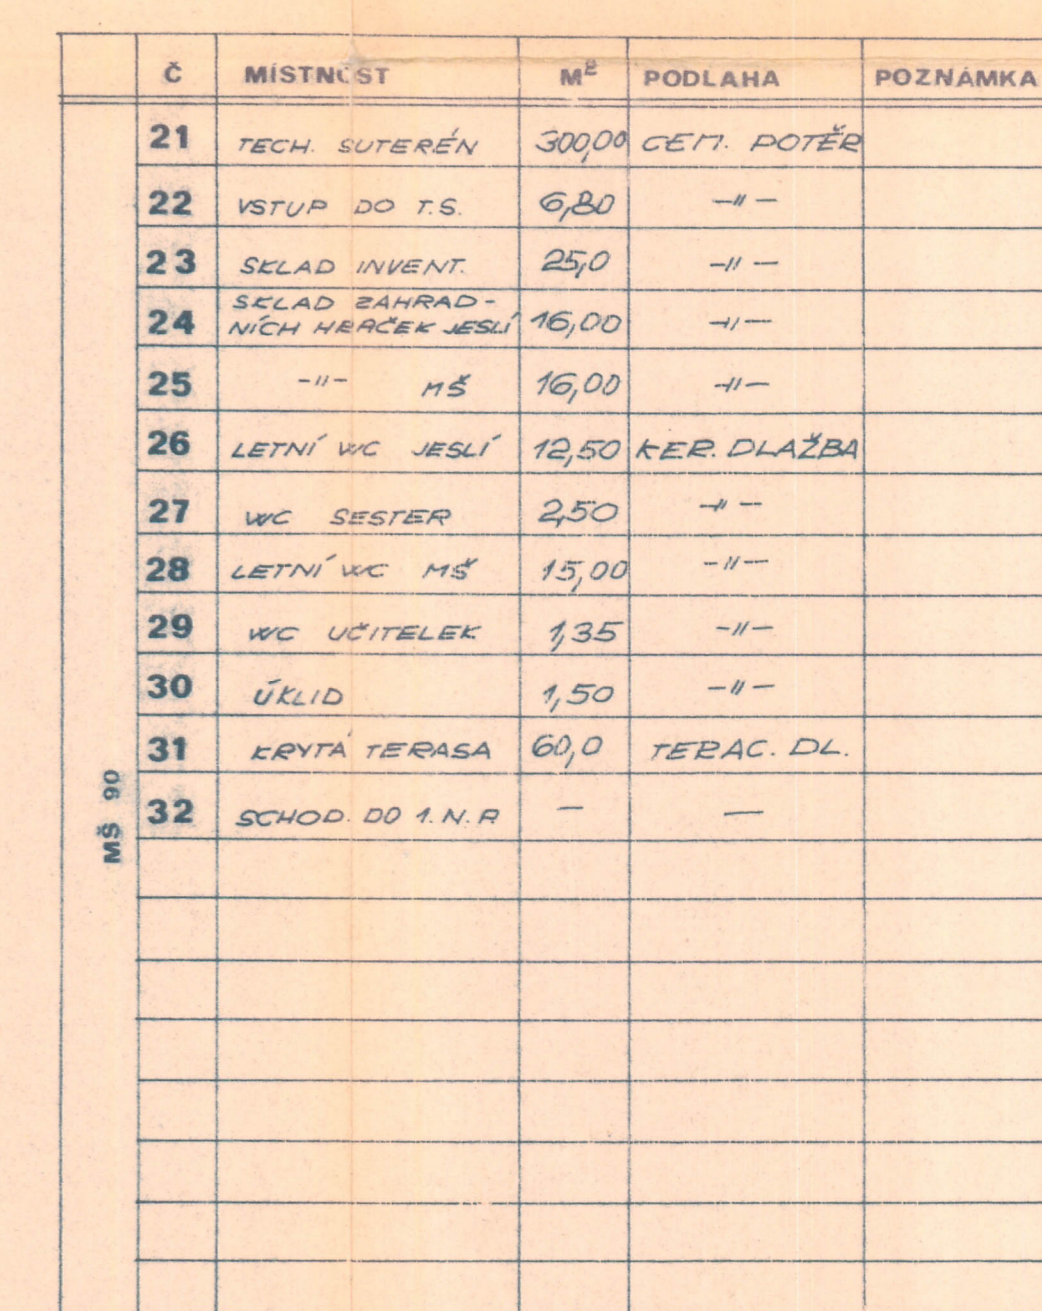 Č MÍSTNOST M² PODLAHA POZNÁMKA
21 TECH. SUTERÉN 300,00 CEM. POTĚR
22 VSTUP DO T.S. 6,80 -〃-
23 SKLAD INVENT. 25,0 -〃-
SKLAD ZAHRAD-
24 NÍCH HRAČEK JESLÍ 16,00 -〃-
25 -〃- MŠ 16,00 -〃-
26 LETNÍ WC JESLÍ 12,50 KER. DLAŽBA
27 WC SESTER 2,50 -〃-
28 LETNÍ WC MŠ 15,00 -〃-
29 WC UČITELEK 1,35 -〃-
30 ÚKLID 1,50 -〃-
31 KRYTÁ TERASA 60,0 TERAC. DL.
32 SCHOD. DO 1.N.P. — —
MŠ 90